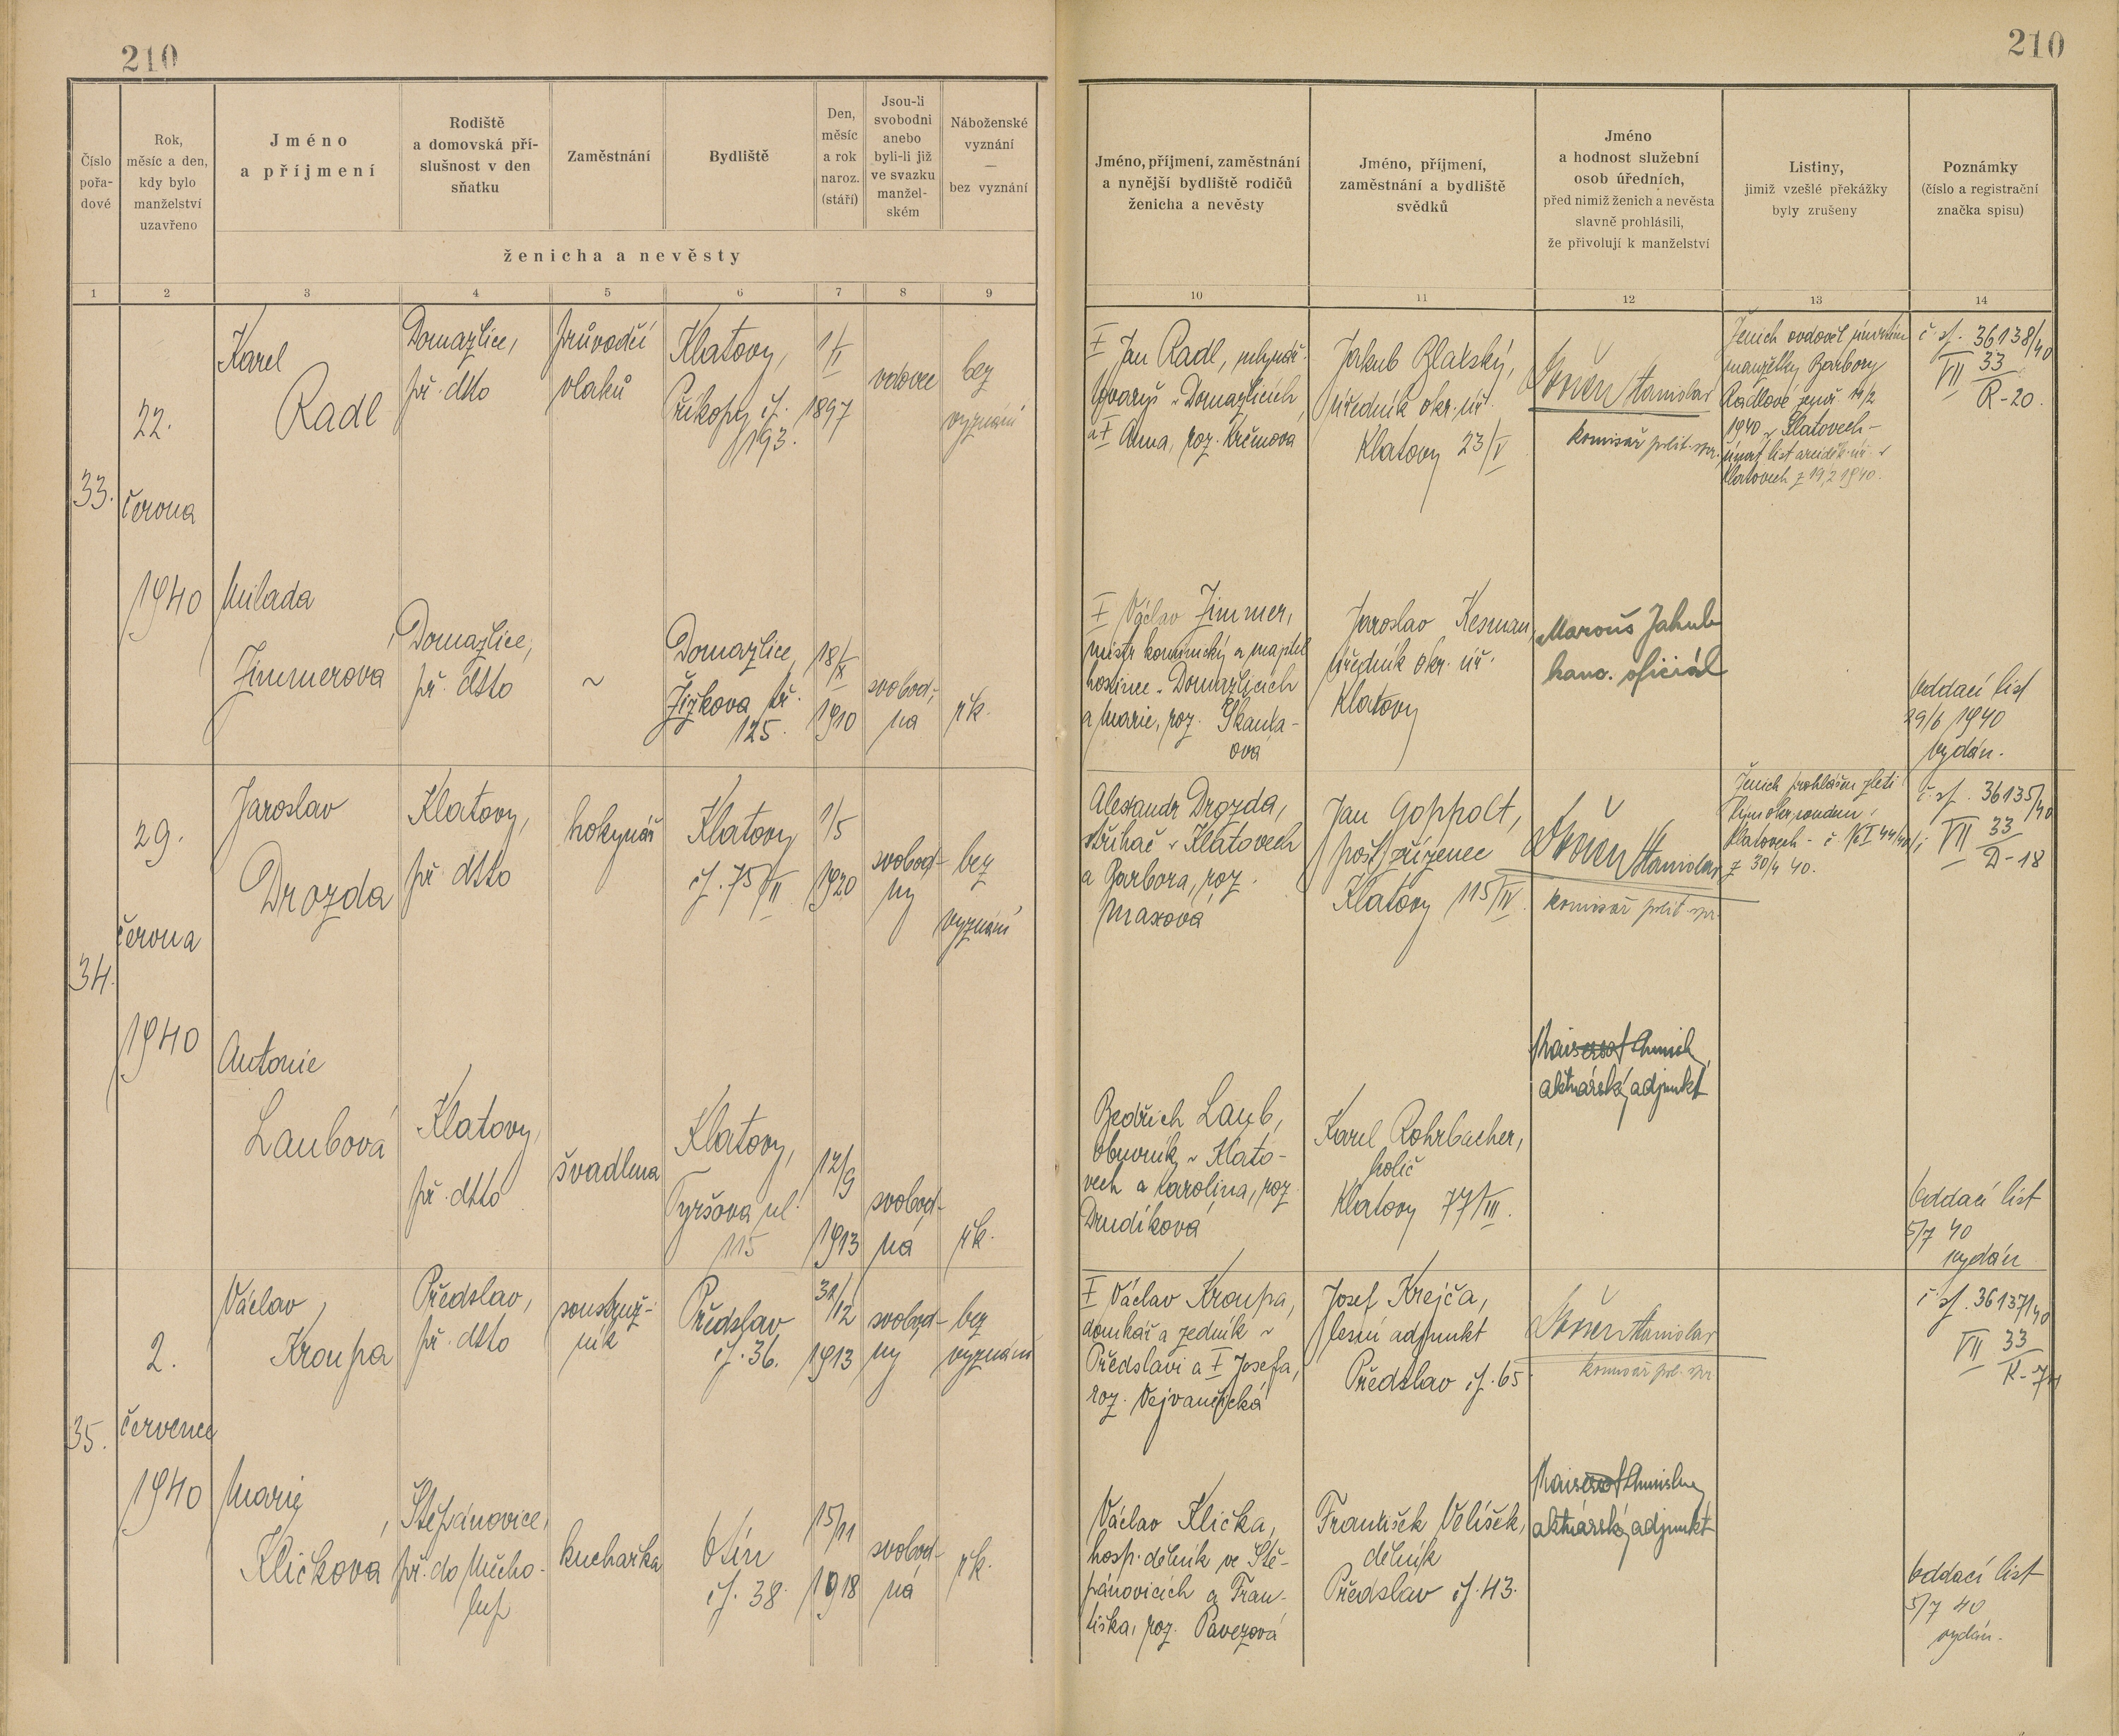 210
210
Číslo
pořa-
dové
Rok,
měsíc a den,
kdy bylo
manželství
uzavřeno
Jméno
a příjmení
Rodiště
a domovská pří-
slušnost v den
sňatku
Zaměstnání
Bydliště
Den,
měsíc
a rok
naroz.
(stáří)
Jsou-li
svobodni
anebo
byli-li již
ve svazku
manžel-
ském
Náboženské
vyznání
—
bez vyznání
ženicha a nevěsty
Jméno, příjmení, zaměstnání
a nynější bydliště rodičů
ženicha a nevěsty
Jméno, příjmení,
zaměstnání a bydliště
svědků
Jméno
a hodnost služební
osob úředních,
před nimiž ženich a nevěsta
slavně prohlásili,
že přivolují k manželství
Listiny,
jimiž vzešlé překážky
byly zrušeny
Poznámky
(číslo a registrační
značka spisu)
1 2 3 4 5 6 7 8 9 10 11 12 13 14
33.
22.
června
1940
Karel
Radl
Domažlice,
př. dtto
průvodčí
vlaků
Klatovy,
Příkopy čp.
193.
1/I
1897
vdovec
bez
vyznání
† Jan Radl, mlynář.
tovaryš v Domažlicích
a † Anna, roz. Krčmova
Jakub Zlatský,
úředník okr. úř.
Klatovy 23/V
Stanislav
komisař polit. spr.
Ženich ovdověl úmrtím
manželky Barbory
Radlové, zemř. 14/2
1940 v Klatovech -
úmrt. list arciděk. úř. v
Klatovech z 19/2 1940.
č. sp. 36138/40
VII 33
R-20.
Milada
Zimmerova
Domažlice,
př. dtto
~
Domažlice,
Žižkova tř.
125.
18/X
1910
svobod-
ná
řk.
† Václav Zimmer,
mistr kominický a majitel
hostince v Domažlicích
a Marie, roz. Skanta-
ová
Jaroslav Kesman,
úředník okr. úř.
Klatovy
Marouš Jakub
kanc. oficiál
Oddací list
29/6 1940
vydán.
34.
29.
června
1940
Jaroslav
Drozda
Klatovy,
př. dtto
hokynář
Klatovy
čp. 75/II
1/5
1920
svobod-
ný
bez
vyznání
Alexandr Drozda,
střihač v Klatovech
a Barbora, roz.
Maxová
Jan Goppolt,
post. zřízenec
Klatovy 115/IV.
Stanislav
komisař polit. spr.
Ženich prohlášen zleti-
lým okr. soudem v
Klatovech - č.
z 30/4 40.
č. sp. 36135/40
VII 33
D-18
Antonie
Laubová
Klatovy,
př. dtto
švadlena
Klatovy,
Tyršova ul.
115
12/9
1913
svobod-
ná
řk.
Bedřich Laub,
obuvník v Klato-
vech a Karolina, roz.
Drudíková
Karel Rohrbacher,
holič
Klatovy 77/III.
aktuárský adjunkt
Oddací list
5/7 40
vydán
35.
2.
července
1940
Václav
Kroupa
Předslav,
př. dtto
soustruž-
ník
Předslav
čp. 36.
31/12
1913
svobod-
ný
bez
vyznání
† Václav Kroupa,
domkář a zedník v
Předslavi a † Josefa,
roz. Vejvančická
Josef Krejča,
lesní adjunkt
Předslav čp. 65
Stanislav
komisař pol. spr.
č. sp. 36137/40
VII 33
Marie
Kličková
Štěpánovice,
př. do Mecho-
lup
kuchařka
Otín
čp. 38.
15/11
1918
svobod-
ná
řk.
Václav Klička,
hosp. dělník ve Ště-
pánovicích a Fran-
tiška, roz. Pavezová
František Velíšek,
dělník
Předslav čp. 43.
aktuárský adjunkt
Oddací list
5/7 40
vydán.